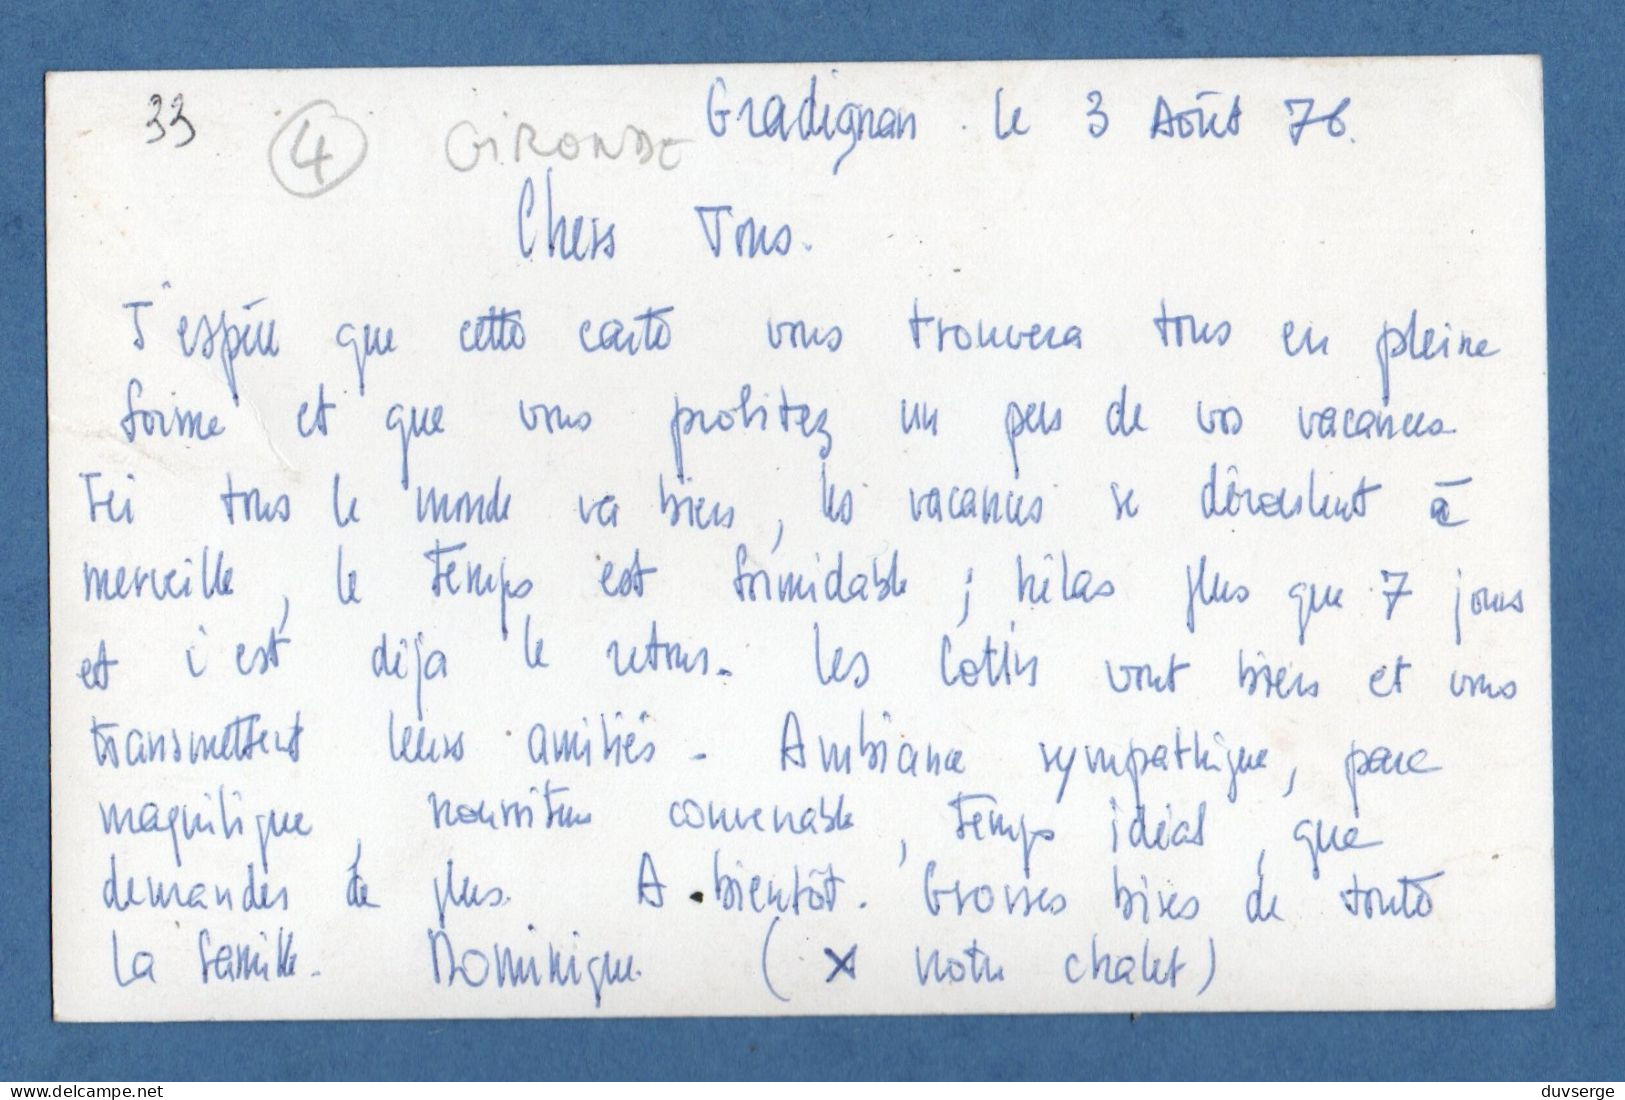 33 4 GIRONDE Gradignan le 3 Août 76.
Chers Tous.
J'espère que cette carte vous trouvera tous en pleine
forme et que vous profitez un peu de vos vacances.
Ici tous le monde va bien, les vacances se déroulent à
merveille, le temps est formidable ; hélas plus que 7 jours
et c'est déja le retour. Les Cottin vont bien et vous
transmettent leurs amitiés. Ambiance sympathique, parc
magnifique, nourriture convenable, temps idéal, que
demander de plus. A bientôt. Grosses bises de toute
la famille. Dominique. (x notre chalet)
delcampe.net
duvserge